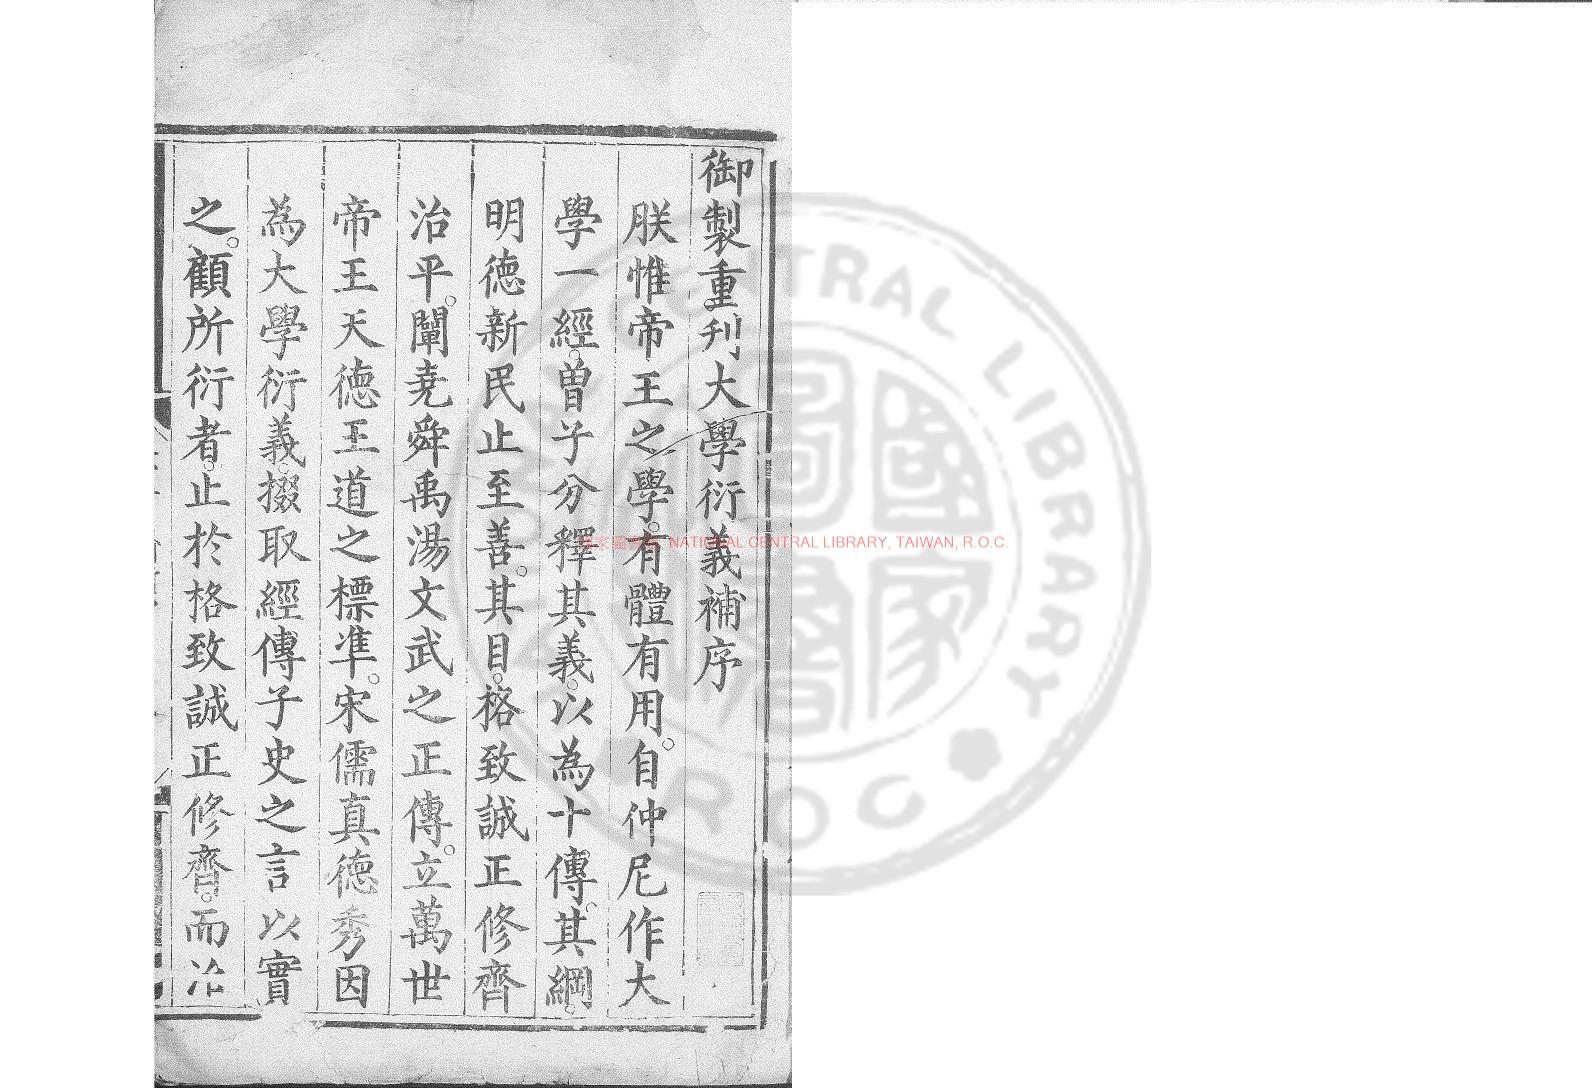 御製重刋大學衍義補序
朕惟帝王之學。有體有用。自仲尼作大
學一經。曾子分釋其義。以為十傳。其綱。
明德新民止至善。其目。格致誠正修齊
治平。闡堯舜禹湯文武之正傳。立萬世
帝王天德王道之標準。宋儒真德秀因
為大學衍義。掇取經傳子史之言以實
之。顧所衍者。止於格致誠正修齊。而治
國家圖書館, NATIONAL CENTRAL LIBRARY, TAIWAN, R.O.C.
NATIONAL CENTRAL LIBRARY
R.O.C
國家圖書館